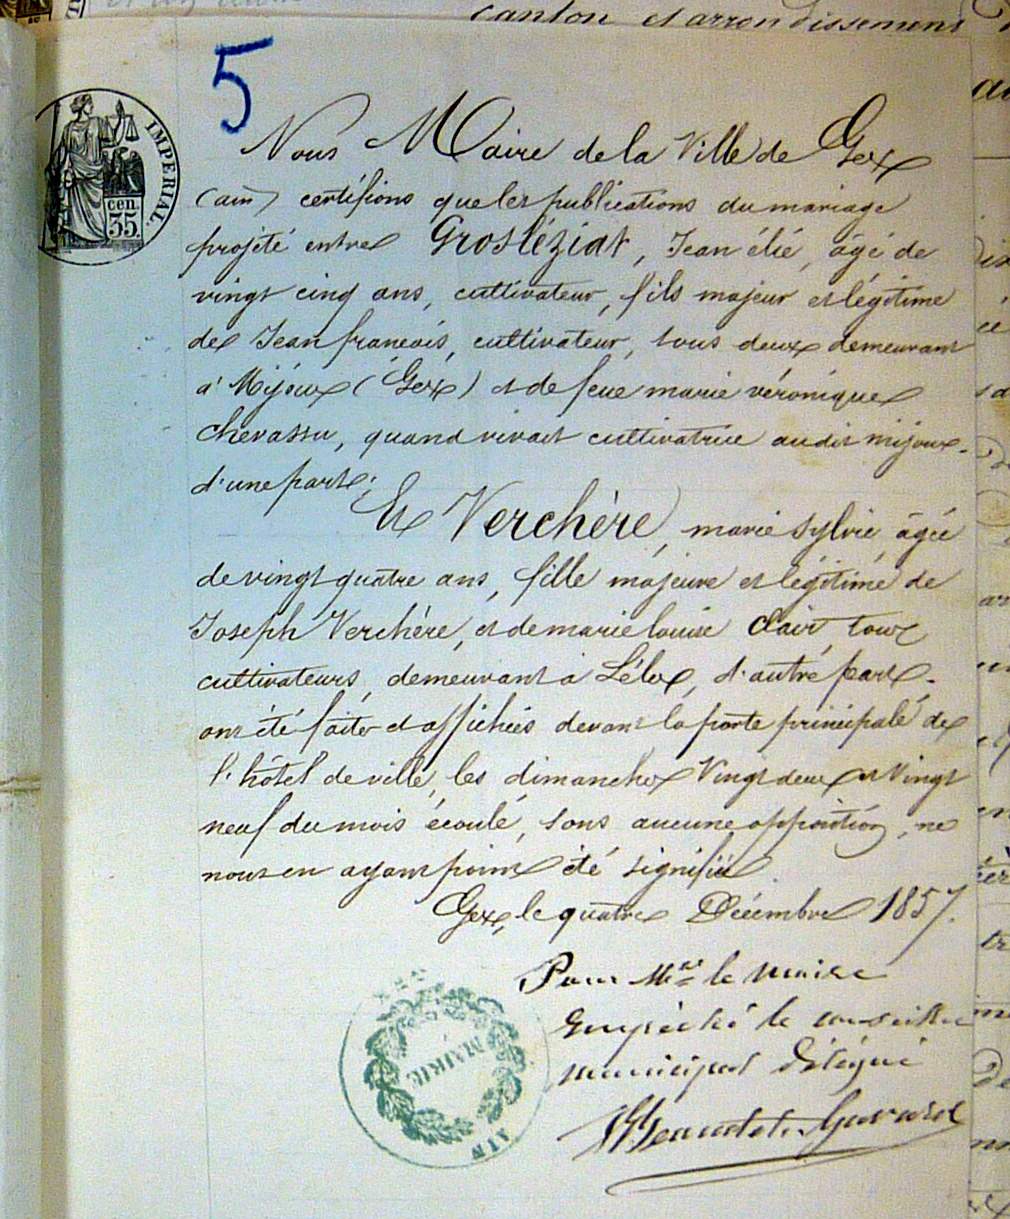 canton et arrondissement
5
IMPERIAL.
cen.
35.
Nous Maire de la Ville de Gex
(ain) certifions que les publications du mariage
projeté entre Grosléziat, Jean élié, âgé de
vingt cinq ans, cultivateur, fils majeur et légitime
de Jean francois, cultivateur, tous deux demeurant
a' Mijoux (Gex) et de feue marie véronique
Chevassu, quand vivait cultivatrice audit mijoux.
d'une part;
Et Verchère, marie sylvie, âgée
de vingt quatre ans, fille majeure et légitime de
Joseph Verchère, et de marie louise Clair, tous
cultivateurs, demeurant à Lélex, d'autre part.
ont été faites et affichées devant la porte principale de
l'hôtel de ville, les dimanches Vingt deux et Vingt
neuf du mois écoulé, sans aucune opposition, ne
nous en ayant point été signifié
Gex, le quatre Décembre 1857.
Pour Mr le Maire
Empêché le conseiller
municipal délégué
MAIRIE
AIN